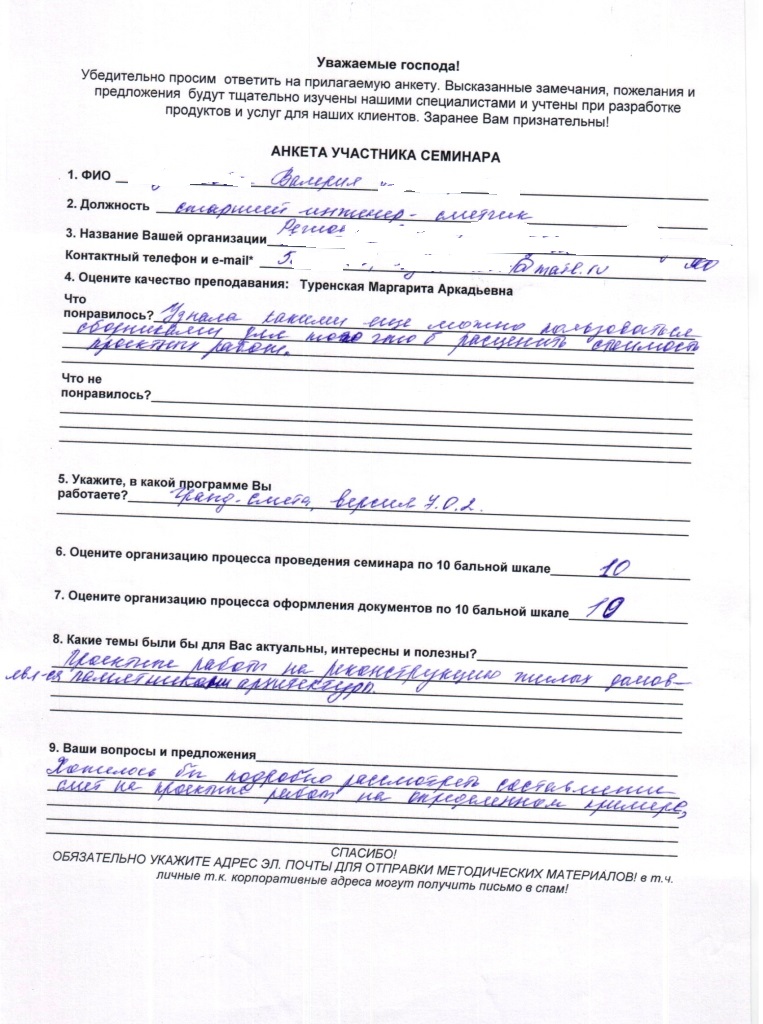 Уважаемые господа!
Убедительно просим ответить на прилагаемую анкету. Высказанные замечания, пожелания и
предложения будут тщательно изучены нашими специалистами и учтены при разработке
продуктов и услуг для наших клиентов. Заранее Вам признательны!
АНКЕТА УЧАСТНИКА СЕМИНАРА
1. ФИО Валерия
2. Должность старший инженер-сметчик
3. Название Вашей организации
Контактный телефон и e-mail* @mail.ru
4. Оцените качество преподавания: Туренская Маргарита Аркадьевна
Что
понравилось? Узнала какими еще можно пользоваться
сборниками для того чтоб расценить стоимость
проектных работ.
Что не
понравилось?
5. Укажите, в какой программе Вы
работаете? Гранд-смета, версия 7.0.2.
6. Оцените организацию процесса проведения семинара по 10 бальной шкале 10
7. Оцените организацию процесса оформления документов по 10 бальной шкале 10
8. Какие темы были бы для Вас актуальны, интересны и полезны?
Проектные работы на реконструкцию жилых домов-
явл-ся памятниками архитектуры.
9. Ваши вопросы и предложения
Хотелось бы подробно рассмотреть составление
смет на проектные работы на определенном примере,
СПАСИБО!
ОБЯЗАТЕЛЬНО УКАЖИТЕ АДРЕС ЭЛ. ПОЧТЫ ДЛЯ ОТПРАВКИ МЕТОДИЧЕСКИХ МАТЕРИАЛОВ! в т.ч.
личные т.к. корпоративные адреса могут получить письмо в спам!